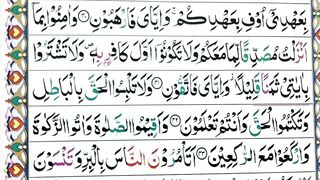 بِعَهْدِىْٓ اُوْفِ بِعَهْدِكُمْ ۚ وَاِيَّاىَ فَارْهَبُوْنِ ۝۴۰ وَاٰمِنُوْا بِمَاۤ
اَنْزَلْتُ مُصَدِّقًا لِّمَا مَعَكُمْ وَلَا تَكُوْنُوْۤا اَوَّلَ كَافِرٍۭ بِهٖ ۪ وَلَا تَشْتَرُوْا
بِاٰيٰتِىْ ثَمَنًا قَلِيْلًا ؗ وَّاِيَّاىَ فَاتَّقُوْنِ ۝۴۱ وَلَا تَلْبِسُوا الْحَقَّ بِالْبَاطِلِ
وَتَكْتُمُوا الْحَقَّ وَاَنْتُمْ تَعْلَمُوْنَ ۝۴۲ وَاَقِيْمُوا الصَّلٰوةَ وَاٰتُوا الزَّكٰوةَ
وَارْكَعُوْا مَعَ الرّٰكِعِيْنَ ۝۴۳ اَتَاْمُرُوْنَ النَّاسَ بِالْبِرِّ وَتَنْسَوْنَ